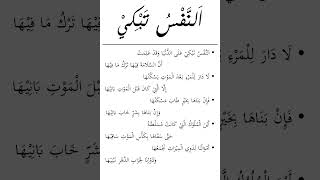 اَلنَّفْسُ تَبْكِيْ
• النَّفْسُ تَبْكِيْ عَلَى الدُّنْيَا وَقَدْ عَلِمَتْ
أَنَّ السَّلَامَةَ فِيْهَا تَرْكُ مَا فِيْهَا
• لَا دَارَ لِلْمَرْءِ بَعْدَ الْمَوْتِ يَسْكُنُهَا
إِلَّا الَّتِيْ كَانَ قَبْلَ الْمَوْتِ بَانِيْهَا
• فَإِنْ بَنَاهَا بِخَيْرٍ طَابَ مَسْكَنُهَا
وَإِنْ بَنَاهَا بِشَرٍّ خَابَ بَانِيْهَا
• أَيْنَ الْمُلُوْكُ الَّتِيْ كَانَتْ مُسَلْطَنَةً
حَتَّى سَقَاهَا بِكَأْسِ الْمَوْتِ سَاقِيْهَا
• أَمْوَالُنَا لِذَوِي الْمِيْرَاثِ نَجْمَعُهَا
وَدُوْرُنَا لِخَرَابِ الدَّهْرِ نَبْنِيْهَا